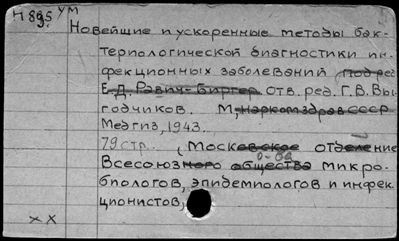 Н 895. ум
Новейшие и ускоренные методы бак-
териологической диагностики ин-
фекционных заболеваний под ред
Е.Д. Равич-Биргер отв. ред. Г.В. Вы-
годчиков. М, наркомздрав СССР
Медгиз, 1943.
79 стр. (Московское отделение
Всесоюзного о-ва общества микро-
биологов, эпидемиологов и инфек-
ционистов)
х х